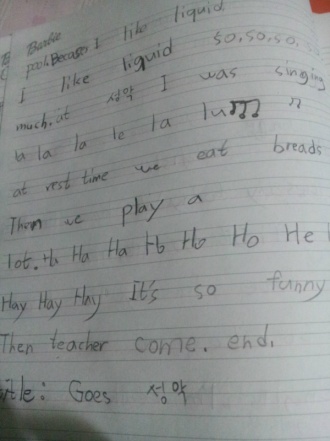 Barbie
pool. Because I like liquid.
I like liquid so, so, so,
much. at 성악 I was singing
la la la le la lu
at rest time we eat breads
Then we play a
lot. Ha Ha Ha Ho Ho Ho He
Hay Hay Hay It's so funny
Then teacher come. end.
title: Goes 성악